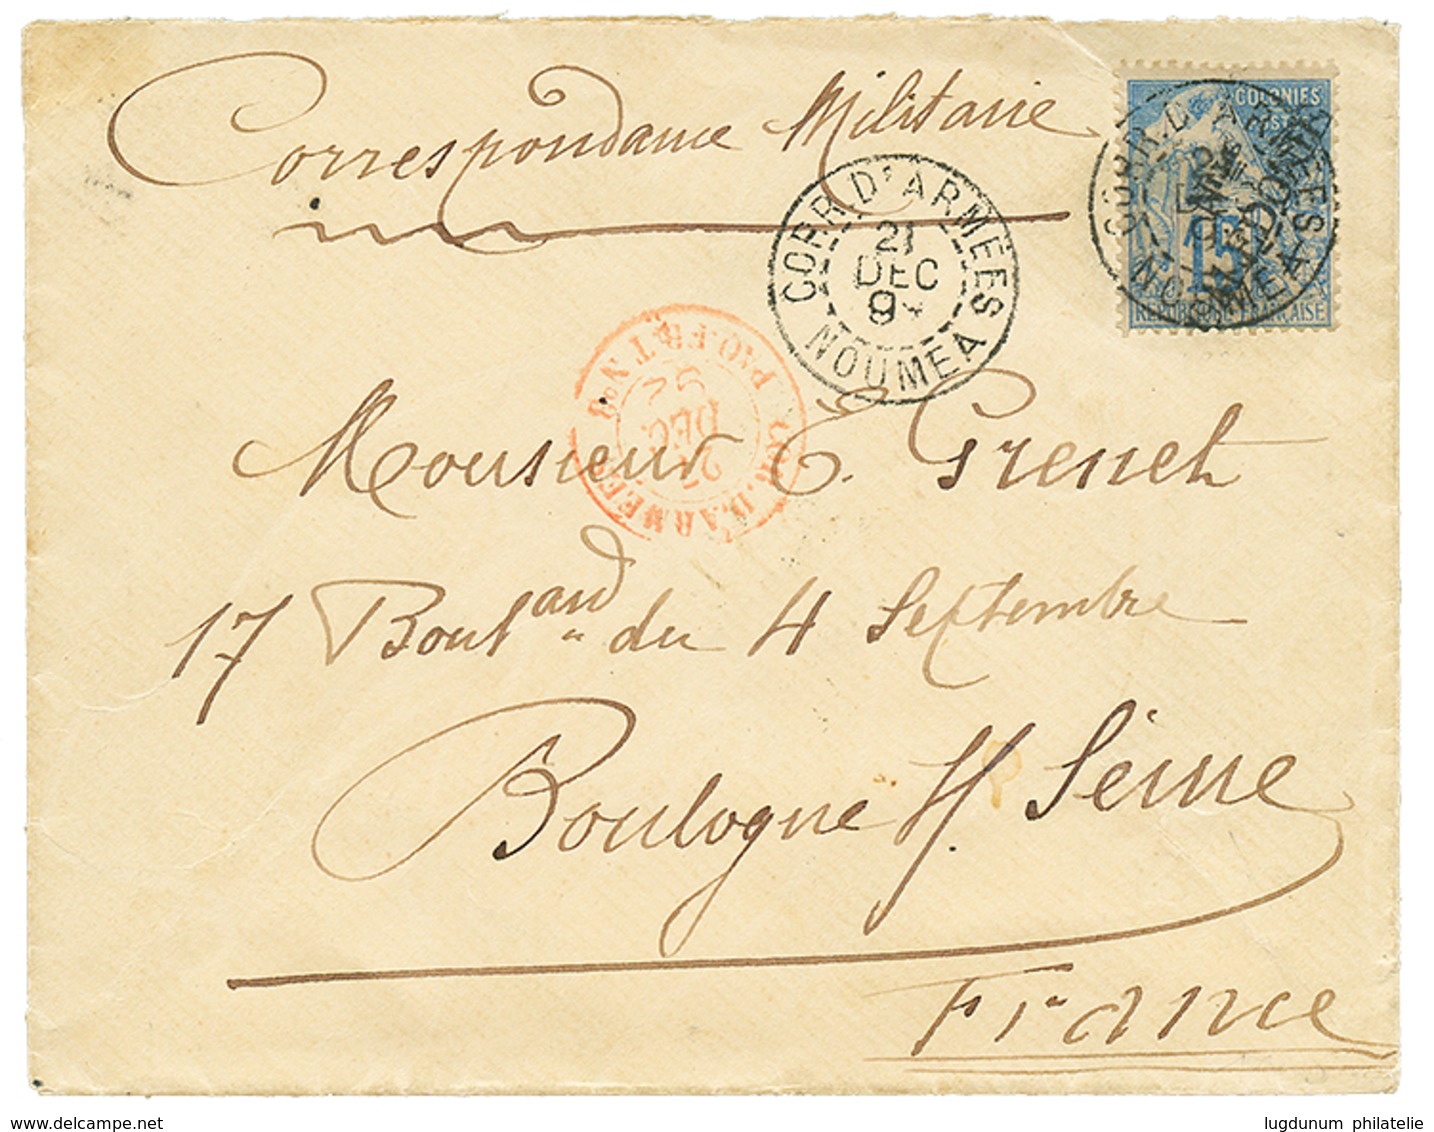 Correspondance Militaire
COLONIES
15
REPUBLIQUE FRANÇAISE
CORR. D'ARMEES
NOUMEA
CORR. D'ARMÉES
21
DEC
NOUMEA
COR. D'ARMEES
27
DEC
92
PAQ. FR. T Nº 8
Monsieur E. Grenet
17 Boulard du 4 Septembre
Boulogne s/ Seine
France
lugdunum philatelie